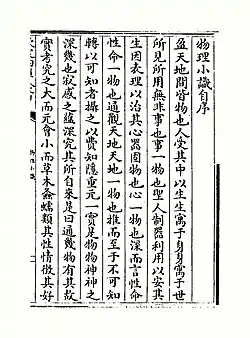 物理小識自序
盈天地間皆物也人受其中以生生寓於身身寓於世
所見所用無非事也事一物也聖人制器利用以安其
生因表理以治其心器固物也心一物也深而言性命
性命一物也通觀天地天地一物也推而至于不可知
轉以可知者攝之以費知隱重玄一實是物物神神之
深幾也寂感之蘊深究其所自來是曰通幾物有其故
實考究之大而元會小而草木蠢蠕類其性情徵其好